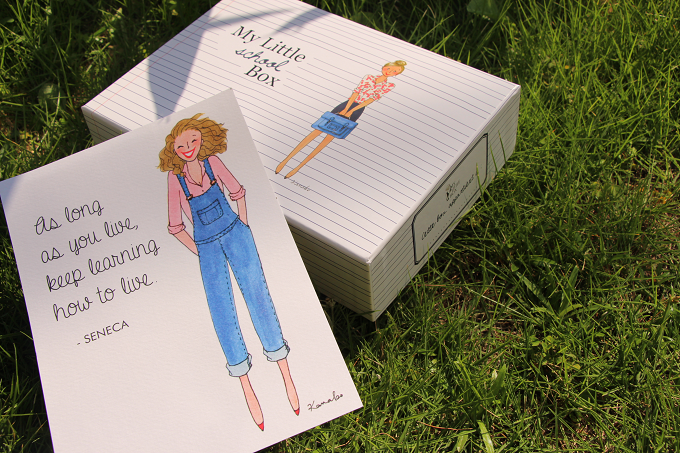 My Little
school
Box
As long
as you live,
keep learning
how to live.
- SENECA
Kanako